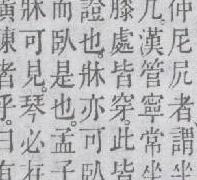 仲尼凥者謂
几。漢管寧常坐
膝處皆穿。此皆
證也。牀亦可臥
而臥是也。孟子
牀可見。琴必在
者乎。曰